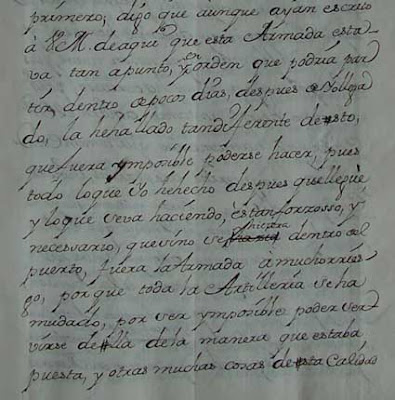 primero; digo que aunque ayan escrito
à V.M. de aqui que esta Armada esta-
va tan apunto, y en orden que podria par-
tir dentro de pocos dias, despues de Yo llega
do, la he hallado tan diferente de esto,
que fuera ymposible poderse hacer, pues
todo loque Yo hehecho despues que llegue
y loque se va haciendo, es tan forzoso, y
necesario, que sino se hiciera dentro del
puerto, fuera la Armada à mucho ries-
go, por que toda la Artilleria se ha
mudado, por ser ymposible poder ser-
virse de ella de la manera que estaba
puesta, y otras muchas cosas de esta Calidad